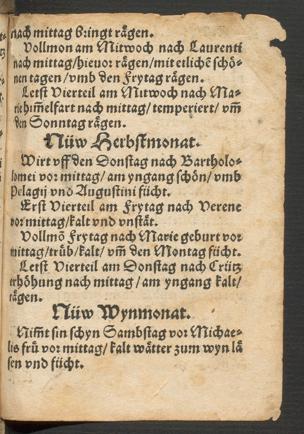 nach mittag bringt rägen.
Vollmon am Mitwoch nach Laurenti
nach mittag/hieuor rägen/mit etlichē schö-
nen tagen/vmb den Frytag rägen.
Letst Vierteil am Mitwoch nach Ma-
rie him̄elfart nach mittag/temperiert/ vm̄
den Sonntag rägen.
Nüw Herbstmonat.
Wirt vff den Donstag nach Bartholo-
lomei vor mittag/ am yngang schön/ vmb
Pelagij vnd Augustini fücht.
Erst Vierteil am Frytag nach Verene
vor mittag/kalt vnd vnstät.
Vollmō Frytag nach Marie geburt vor
mittag/trüb/kalt/ vm̄ den Montag fücht.
Letst Vierteil am Donstag nach Crütz
erhöhung nach mittag/am yngang kalt/
rägen.
Nüw Wynmonat.
Nim̄t sin schyn Sambstag vor Michae-
lis frü vor mittag/ kalt wätter zum wyn lä
sen vnd fücht.